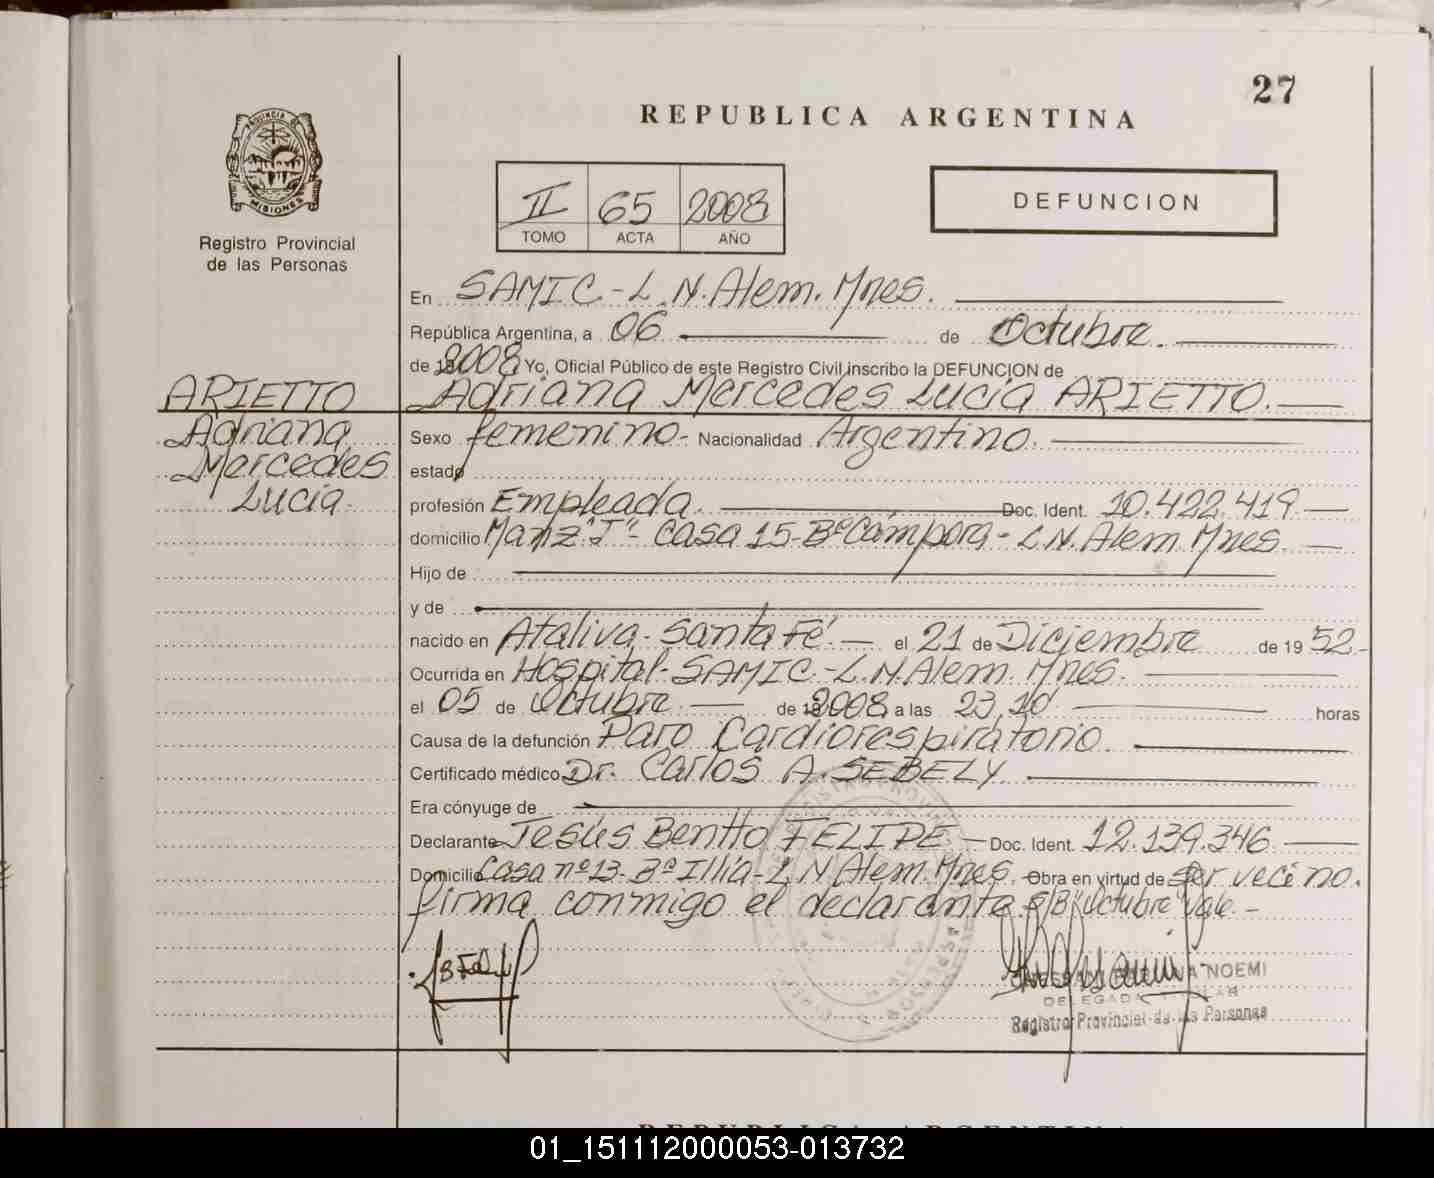 27
REPUBLICA ARGENTINA
PROVINCIA DE
MISIONES
Registro Provincial
de las Personas
II 65 2008
TOMO ACTA AÑO
DEFUNCION
En SAMIC - L.N. Alem. Mnes.
República Argentina, a 06 de Octubre
de 2008 Yo, Oficial Público de este Registro Civil inscribo la DEFUNCION de
Adriana Mercedes Lucía ARIETTO.
ARIETTO
Adriana
Mercedes
Lucía.
Sexo femenino - Nacionalidad Argentino.
estado
profesión Empleada. Doc. Ident. 10.422.419
domicilio Manz "J" - Casa 15 - Bº Cámpora - L.N. Alem. Mnes.
Hijo de
y de
nacido en Ataliva - Santa Fé. el 21 de Diciembre de 1952.
Ocurrida en Hospital - SAMIC - L.N. Alem. Mnes.
el 05 de Octubre de 2008 a las 23,10 horas
Causa de la defunción Paro Cardiorespiratorio.
Certificado médico Dr. Carlos A. SEBELY
Era cónyuge de
Declarante Jesús Benito FELIPE Doc. Ident. 12.139.346
Domicilio Casa nº 13 - Bº Illia - L.N. Alem. Mnes. Obra en virtud de ser vecino.
firma conmigo el declarante. S/B "Octubre" Vale. -
NOEMI
DELEGADA
Registro Provincial de las Personas
REPUBLICA ARGENTINA
01_151112000053-013732